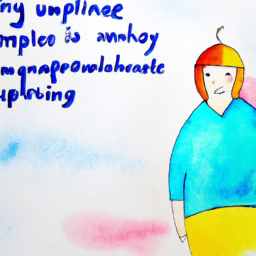 ny unplinee
mpleo is annhoy
mgnapeonalohcastc
uplrting